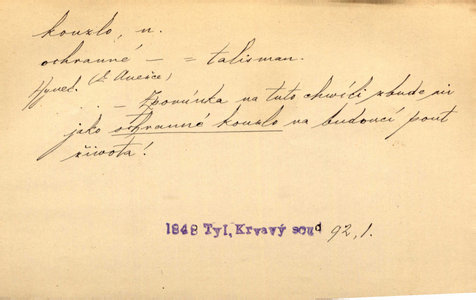 kouzlo, n.
ochranné – = talisman.
Hynek (z Anešce)
. . – Zpomínka na tuto chvíli zbude mi
jako ochranné kouzlo na budoucí pouť
života!
1848 Tyl, Krvavý soud 92,1.